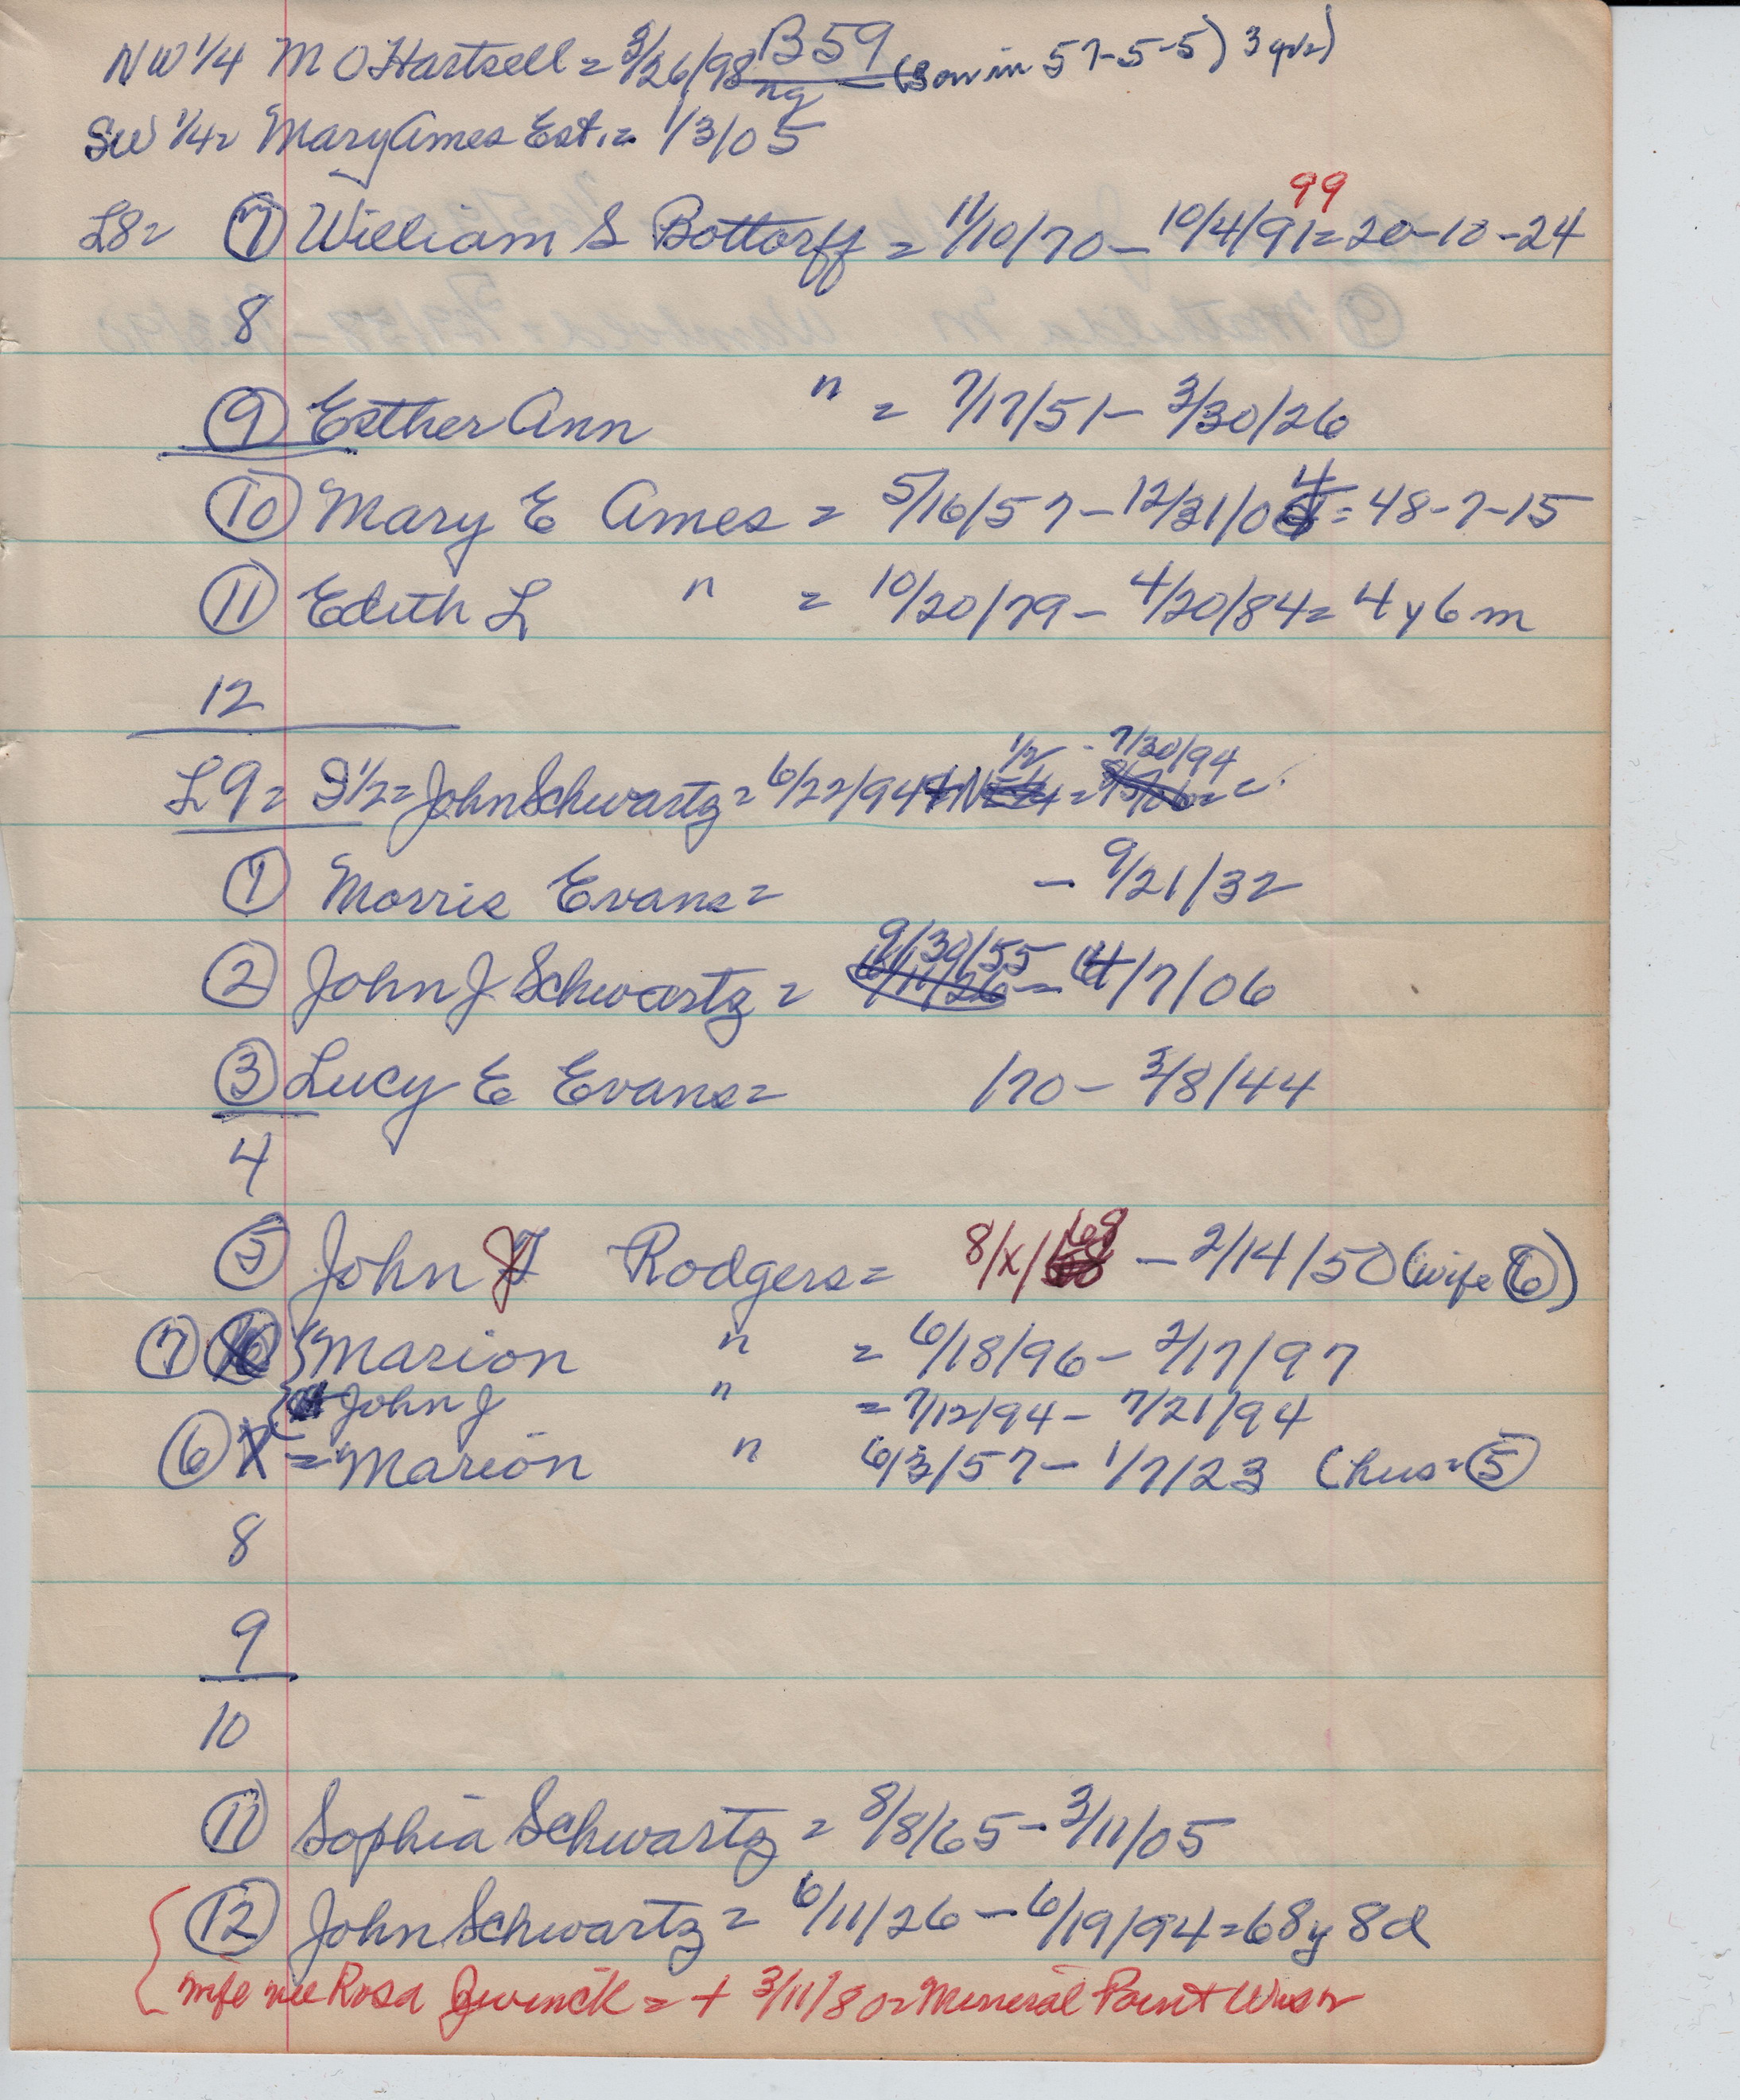 B59
NW 1/4 M O Hartsell = 3/26/98 (son in 57-5-5) 3 
SW 1/4 = Mary Ames Est. = 1/3/05
99
L8 = 7 William S Bottorff = 11/10/70 – 10/4/91 = 20-10-24
8
9 Esther Ann " = 7/17/51 – 3/30/26
10 Mary E Ames = 5/16/57 – 12/31/04 = 48-7-15
11 Edith L " = 10/20/79 – 4/20/84 = 4y6m
12
1/2 - 7/30/94
L9 = S 1/2 = John Schwartz = 6/22/94 + N =
1 Morris Evans = – 9/21/32
9/30/55
2 John J Schwartz = 6/11/26 – 4/7/06
3 Lucy E Evans = /70 – 3/8/44
4
5 John J Rodgers = 8/x/68 – 2/14/50 (wife 6)
7 6 { Marion " = 6/18/96 – 2/17/97
{ John J " = 7/12/94 – 7/21/94
6 7 = Marion " 6/3/57 – 1/7/23 (hus = 5
8
9
10
11 Sophia Schwartz = 8/8/65 – 3/11/05
12 John Schwartz = 6/11/26 – 6/19/94 = 68y 8d
wife nee Rosa = + 3/11/80 = Mineral Point Wisn